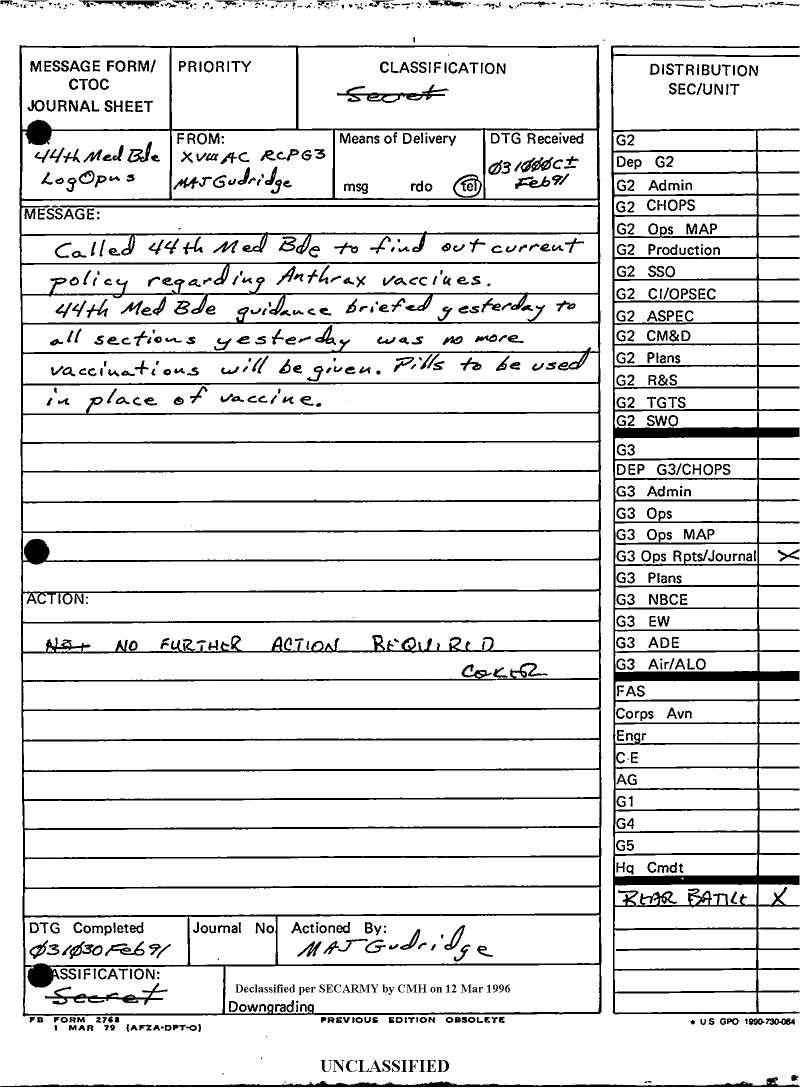 MESSAGE FORM/
CTOC
JOURNAL SHEET
PRIORITY
CLASSIFICATION
Secret
44th Med Bde
LogOpns
FROM:
XVIII AC RCPG3
MAJ Gudridge
Means of Delivery
msg rdo tel
DTG Received
Ø31ØØØC
Feb91
MESSAGE:
Called 44th Med Bde to find out current
policy regarding Anthrax vaccines.
44th Med Bde guidance briefed yesterday to
all sections yesterday was no more
vaccinations will be given. Pills to be used
in place of vaccine.
ACTION:
Not NO FURTHER ACTION REQUIRED
COKER
DTG Completed
Ø31Ø30Feb91
Journal No
Actioned By:
MAJ Gudridge
ASSIFICATION:
Secret
Declassified per SECARMY by CMH on 12 Mar 1996
Downgrading
FB FORM 2768
1 MAR 79 (AFZA-DPT-O)
PREVIOUS EDITION OBSOLETE
DISTRIBUTION
SEC/UNIT
G2
Dep G2
G2 Admin
G2 CHOPS
G2 Ops MAP
G2 Production
G2 SSO
G2 CI/OPSEC
G2 ASPEC
G2 CM&D
G2 Plans
G2 R&S
G2 TGTS
G2 SWO
G3
DEP G3/CHOPS
G3 Admin
G3 Ops
G3 Ops MAP
G3 Ops Rpts/Journal X
G3 Plans
G3 NBCE
G3 EW
G3 ADE
G3 Air/ALO
FAS
Corps Avn
Engr
C-E
AG
G1
G4
G5
Hq Cmdt
REAR BATTLE X
* US GPO 1990-730-084
UNCLASSIFIED